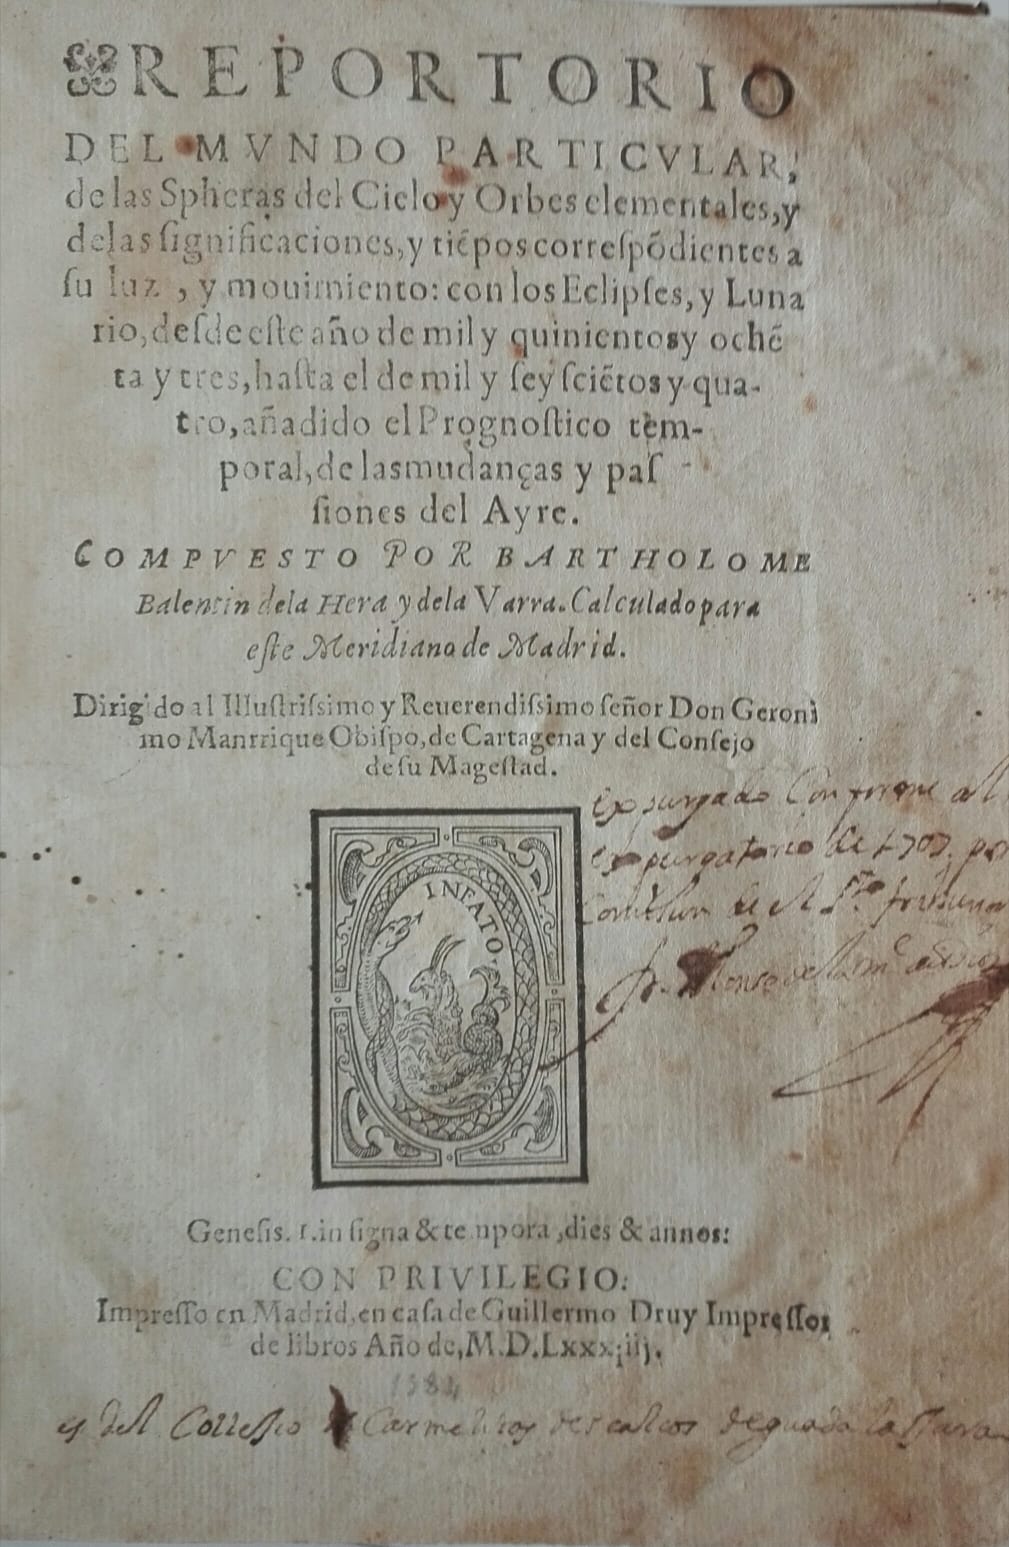 REPORTORIO
DEL MVNDO PARTICVLAR,
de las Spheras del Cielo y Orbes elementales, y
delas ſignificaciones, y tiẽpos correſpõdientes a
ſu luz, y mouimiento: con los Eclipſes, y Luna
rio, deſde eſte año de mil y quinientos y ochẽ
ta y tres, haſta el de mil y ſeyſciẽtos y qua-
tro, añadido el Prognoſtico tem-
poral, de las mudanças y paſ-
ſiones del Ayre.
COMPVESTO POR BARTHOLOME
Balentin dela Hera y dela Varra. Calculado para
eſte Meridiano de Madrid.
Dirigido al Illuſtriſsimo y Reuerendiſsimo ſeñor Don Geroni
mo Manrrique Obiſpo, de Cartagena y del Conſejo
de ſu Mageſtad.
expurgado Conforme al
expurgatorio de 1707. por
Comission de el Sto
Fr. Alonso de la
IN FATO.
Geneſis. 1. in ſigna & tempora, dies & annos:
CON PRIVILEGIO:
Impreſſo en Madrid, en caſa de Guillermo Druy Impreſſor
de libros Año de, M.D.Lxxxiiij.
1584
es del Collessio de Carmelitas descalcos de guadalaxara